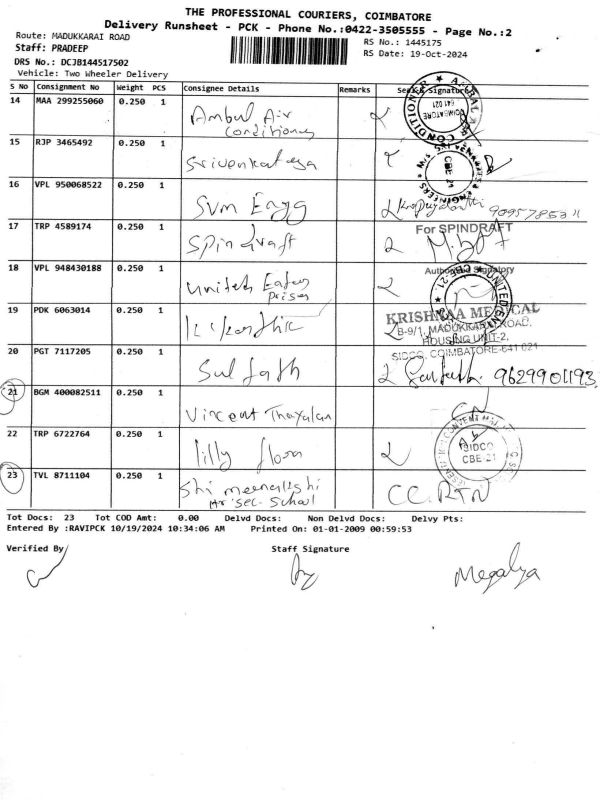 THE PROFESSIONAL COURIERS, COIMBATORE
Delivery Runsheet - PCK - Phone No.:0422-3505555 - Page No.:2
Route: MADUKKARAI ROAD
RS No.: 1445175
Staff: PRADEEP
RS Date: 19-Oct-2024
DRS No.: DCJB144517502
Vehicle: Two Wheeler Delivery
S No Consignment No Weight PCS Consignee Details Remarks Seal & Signature
14 MAA 299255060 0.250 1 Ambal Air
Conditioners
AMBAL AIR CONDITIONER
COIMBATORE
641 021
15 RJP 3465492 0.250 1 Srivenkatesa
ENGINEERS
CBE-21
16 VPL 950068522 0.250 1 SVM Engg
17 TRP 4589174 0.250 1 Spindraft
For SPINDRAFT
Authorised Signatory
18 VPL 948430188 0.250 1 United Enter
prises
UNITED
19 PDK 6063014 0.250 1
KRISHNAA MEDICAL
B-9/1, MADUKKARAI ROAD,
HOUSING UNIT-2,
SIDCO, COIMBATORE-641 021
20 PGT 7117205 0.250 1 Sulfath
9629901193
21 BGM 400082511 0.250 1 Vincent Thayalan
22 TRP 6722764 0.250 1 lilly flora
CONVENT
SIDCO
CBE-21
23 TVL 8711104 0.250 1 Shi meenakshi
Hr sec-School
CC.RTN
Tot Docs: 23 Tot COD Amt: 0.00 Delvd Docs: Non Delvd Docs: Delvy Pts:
Entered By :RAVIPCK 10/19/2024 10:34:06 AM Printed On: 01-01-2009 00:59:53
Verified By Staff Signature
Megalya